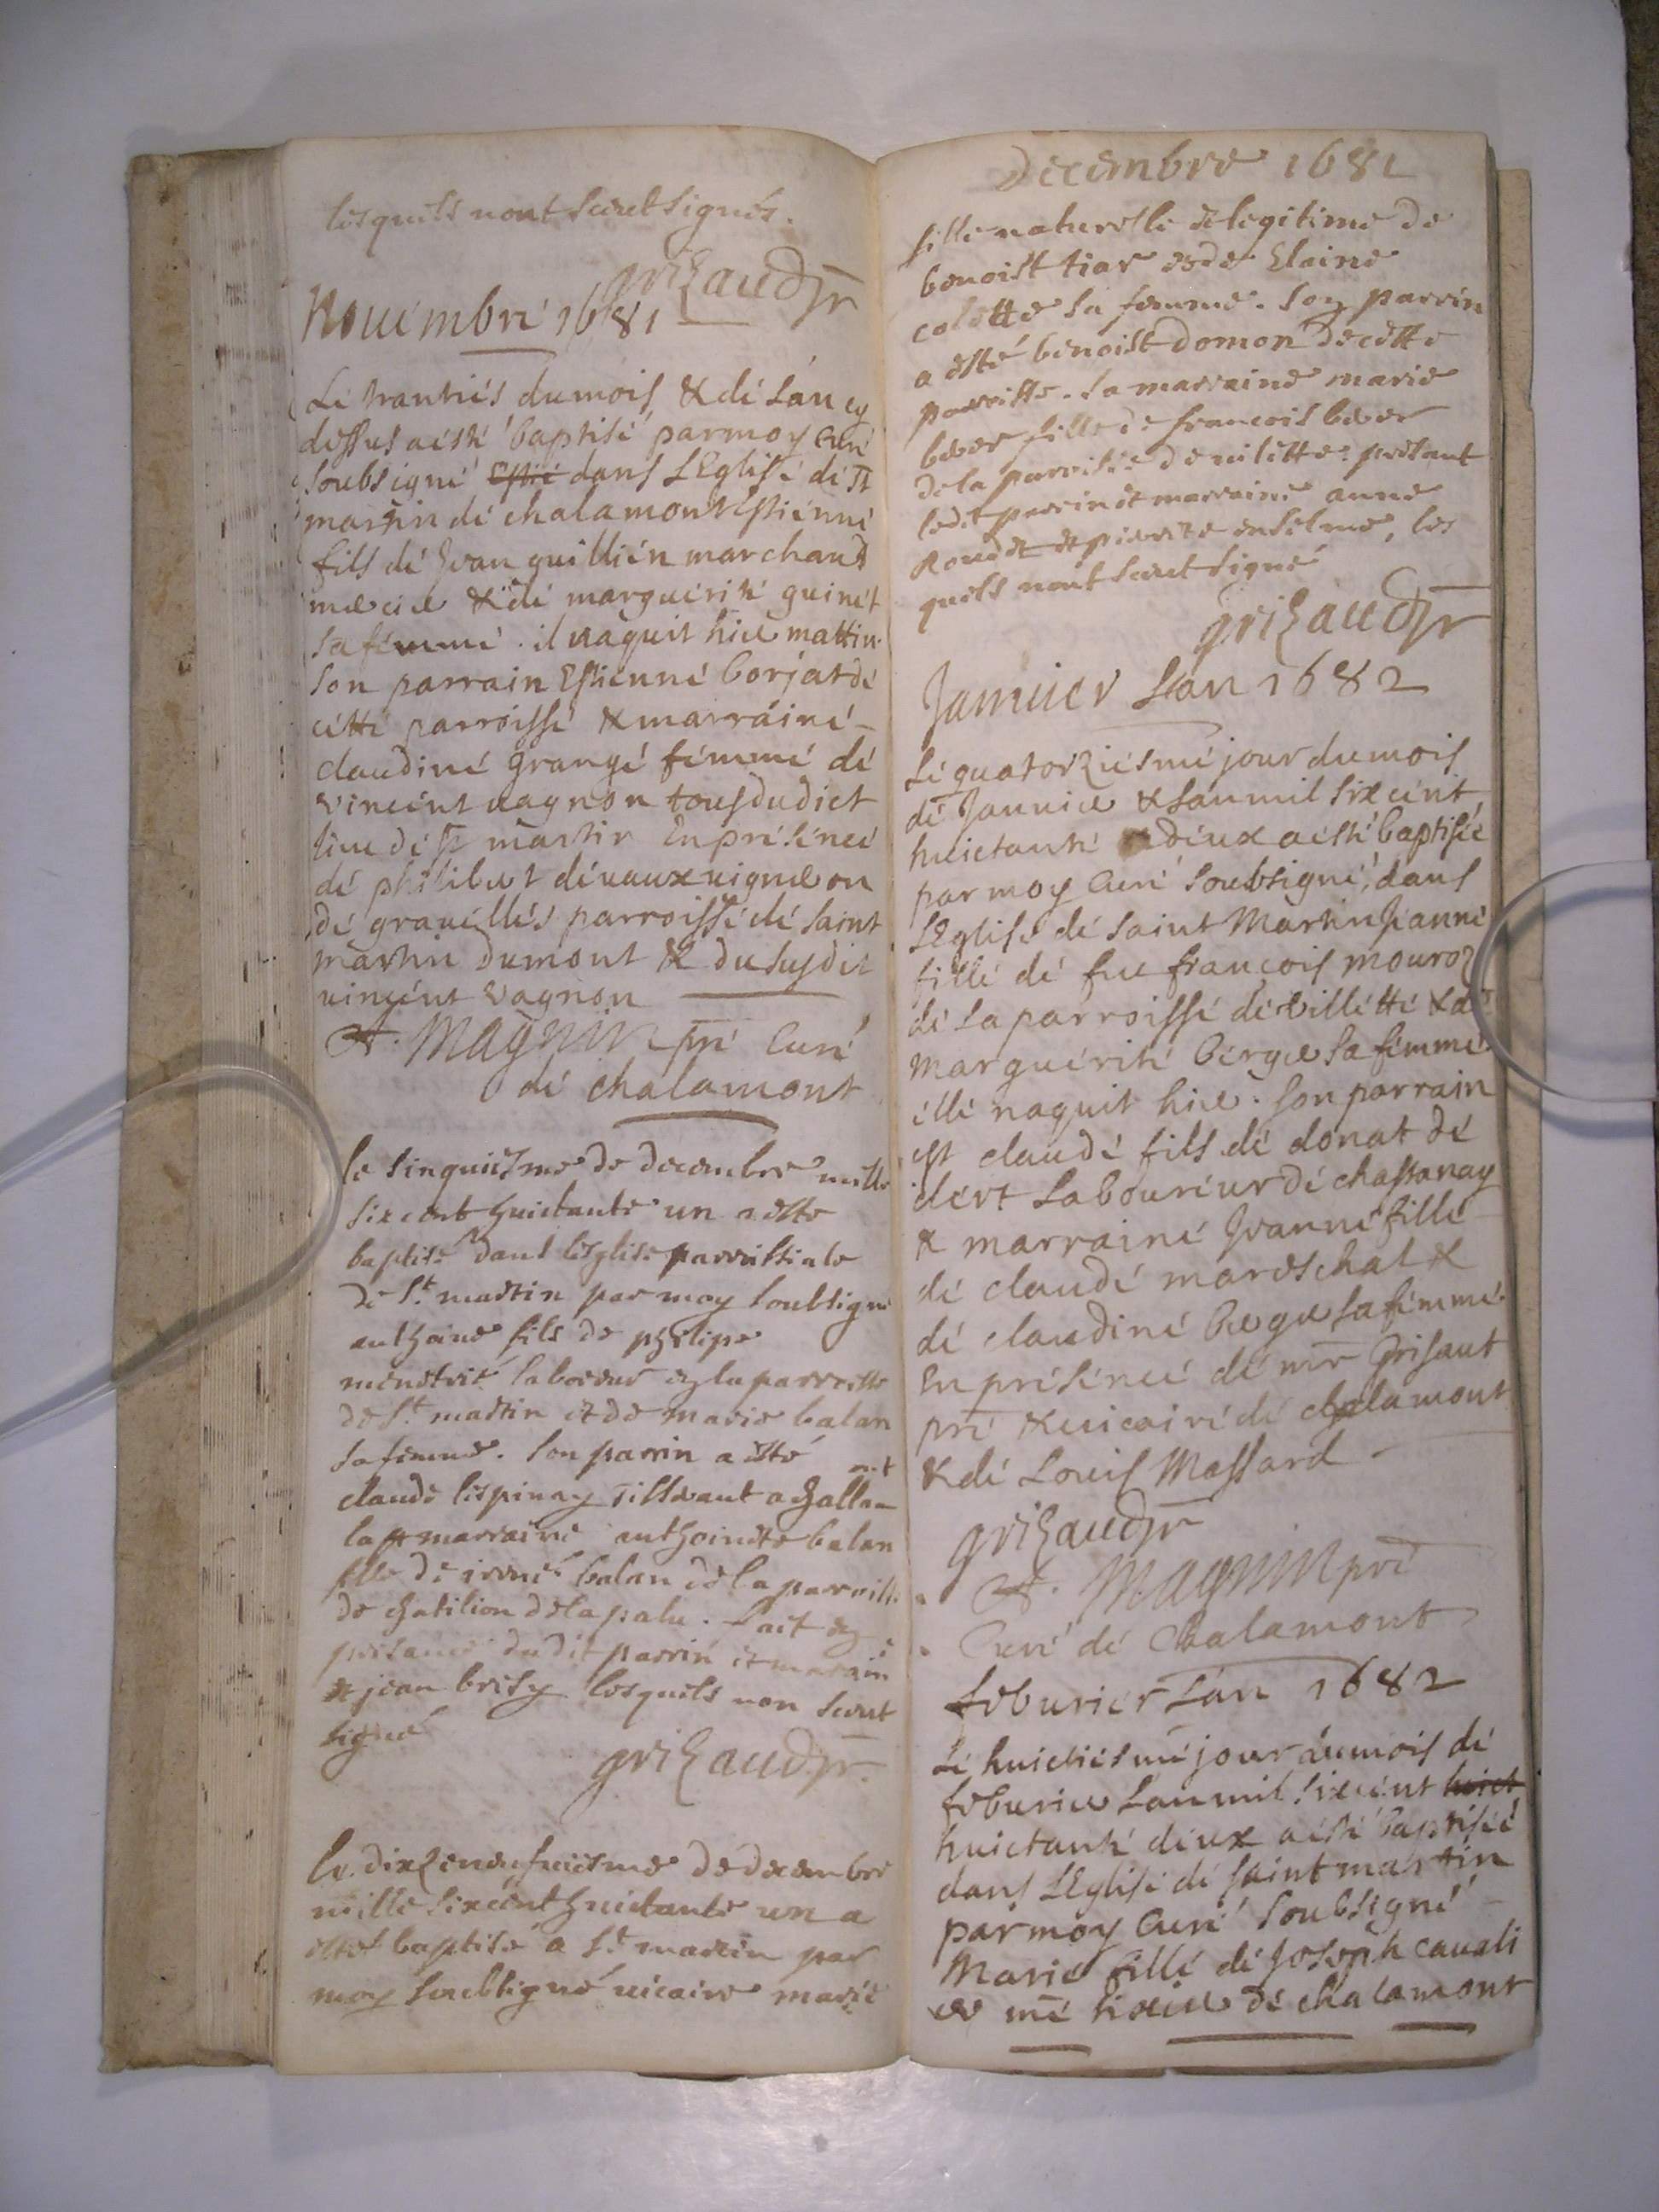 lesquels nont sceut signés.
grizaud pr
Nouembre 1681
Le trantiés du mois & dé l'án cy
dessus a esté baptisé par moy curé
soubsigné Estié dans LEglisé dé St
martin dé chalamont Estiénné
fils dé Jean guillién marchand
mercier & dé marguérité guinét
sa fémmé. il naquit hier mattin.
son parrain Estienné borjat dé
cétté parroissé & marráiné
claudiné grangé fémmé dé
vincént vagnon tous du dict
lieu dé St martin En préséncé
dé philibert déuaux uigneron
dé grauéllés parroissé dé saint
martin dumont & du susdit
vincént vagnon
A. Magnin pré Curé
dé chálamont
le sinquiesme de decembre mille
six cent huictante un a esté
baptisé dans lesglise parroissiale
de St. martin par moy soubsigné
anthoine fils de philipe
menetrié laboeur en la parroisse
de St. martin et de marie balan
sa femme. son parrin a esté
claude lespinay tisserant a challa-
mont
la marraine anthoinete balan
fille de irené balan de la parroisse
de chatilion de la palu. fait en
presance dudit parrin et marain
et jean brisy lesquels non sceut
signé
grizaud pr.
le dixzeneufuiesme de decembre
mille six cent huictante un a
estét baptisé a St. martin par
moy soubsigné uicaire marie
Decembre 1681
fille naturelle et legitime de
benoist tiar et de Elaine
colette sa femme. son parrin
a esté benoist domon de cette
parroisse. la marraine marie
beuer fille de francois beuer
de la parroisse de uilette. presant
ledit parrin et marraine anne
Roudet et pierre enselme, les
quels nont sceut signé
grizaud pr
Januier Lan 1682
Lé quatorziésmé jour du mois
dé Januier & Lan mil six cént
huictanté & déux a esté baptiséé
par moy Curé soubsigné, dans
LEglisé dé saint Martin Jeanné
fillé dé feu françois mouroz
dé la parroissé dé villétté & dé
marguérité bérger sa fémmé.
éllé naquit hier. son parrain
est claudé fils dé donat dé
dért labouriéur dé chassanay
& marrainé Jeanné fillé
dé claudé maréschal &
dé claudiné berger sa fémmé.
En préséncé dé mr Grisaut
pré & uicairé dé chalamont
& dé Louis Massard
grizaud pr
A. Magnin pré
Curé dé Chalamont
feburier Lán 1682
Lé huictiésmé jour du mois dé
feburier Lan mil six cént huict
huictanté déux a esté baptiséé
dans LEglisé dé saint martin
par moy Curé soubsigné
Marie fillé dé Joseph cauali
er mé tixier dé chalamont